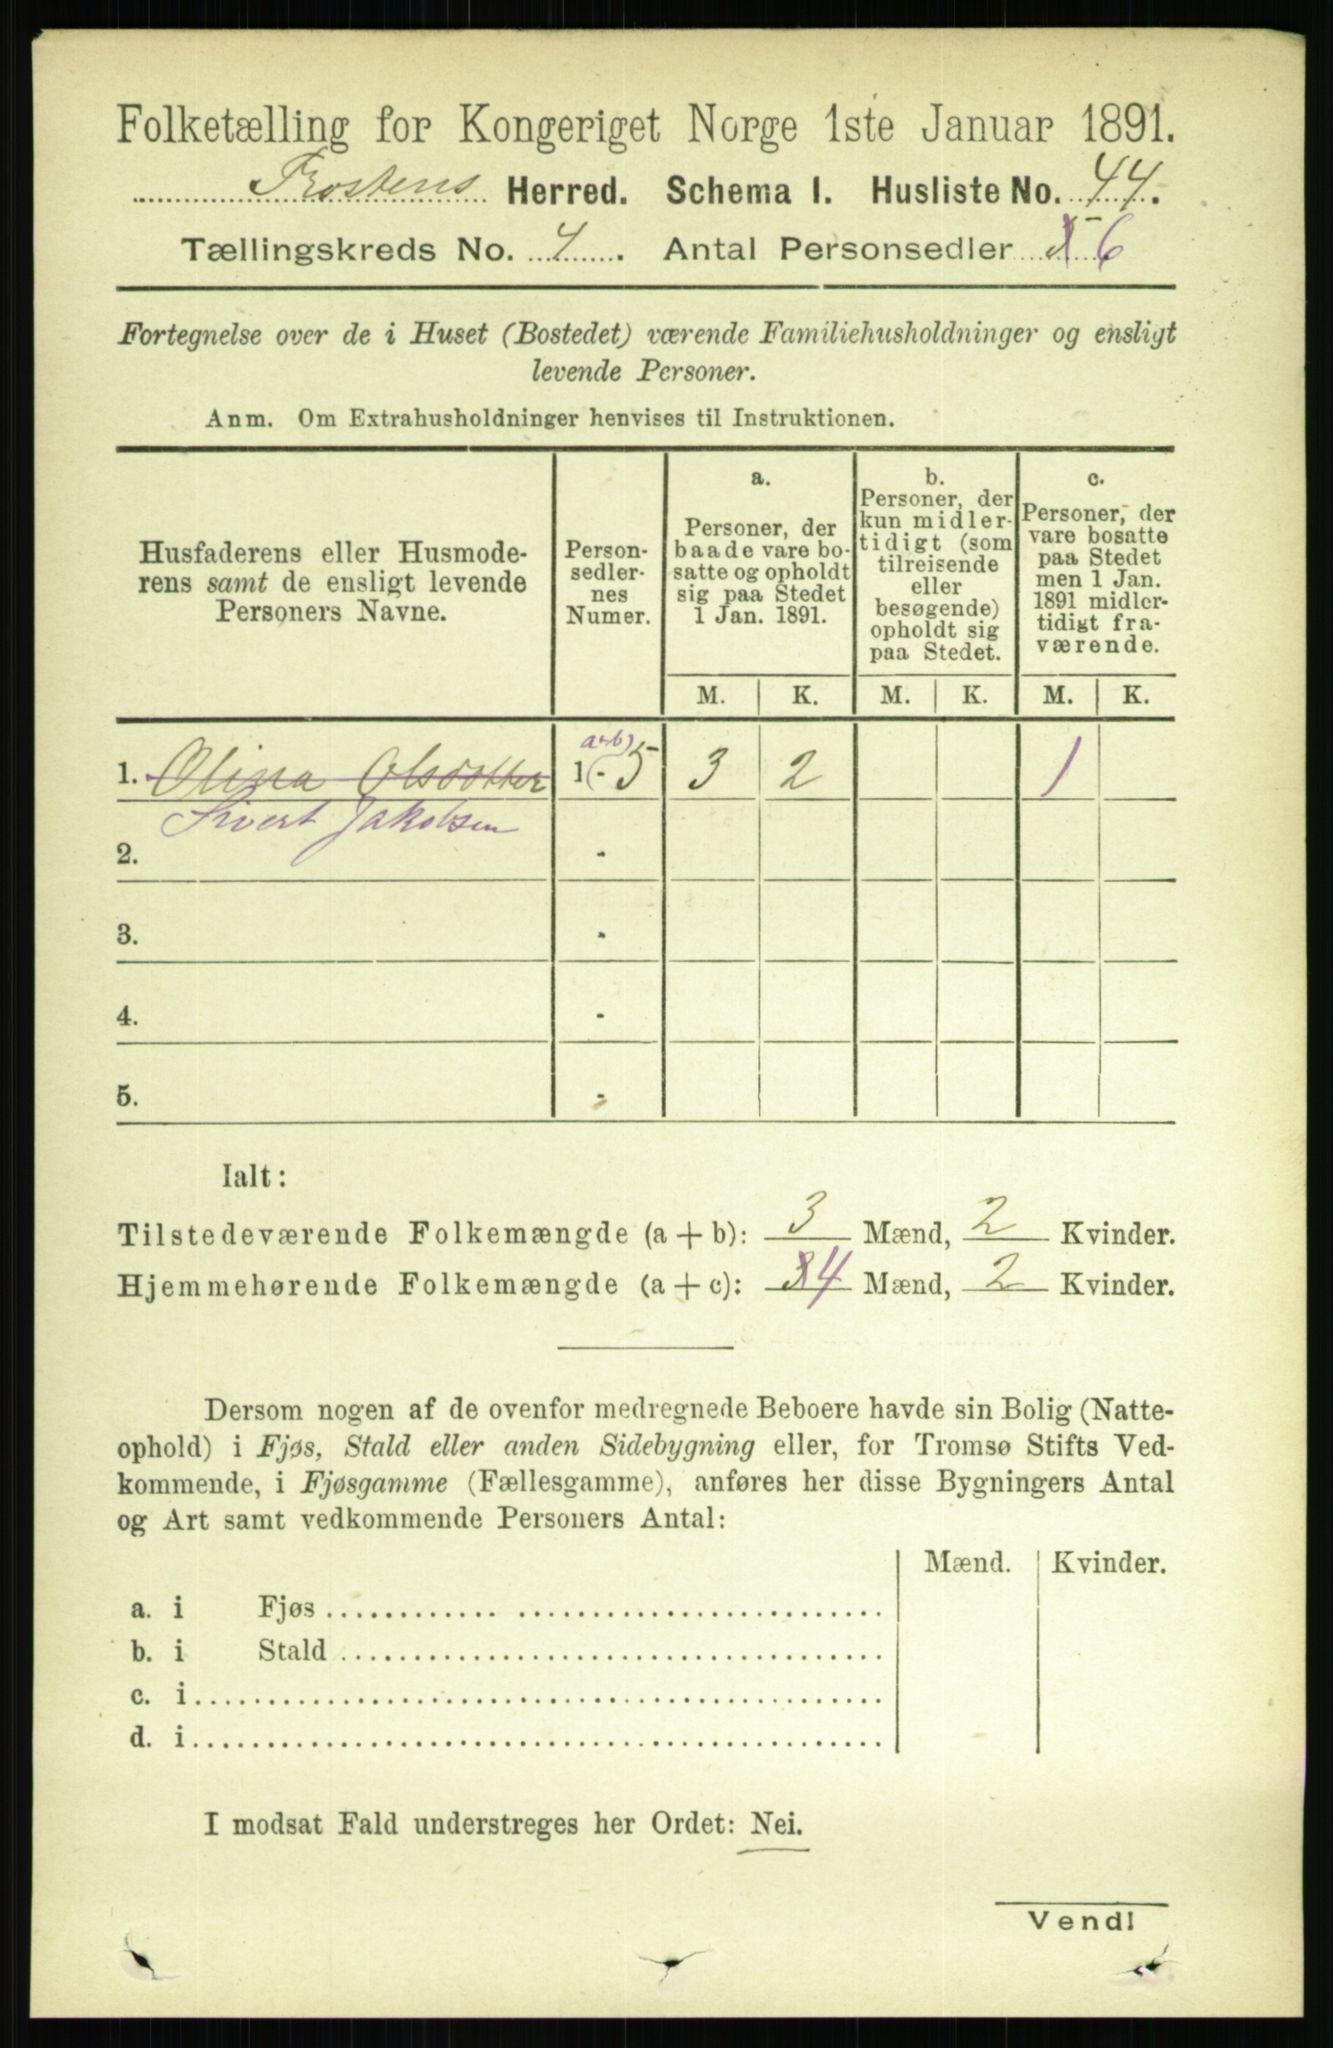 Folketælling for Kongeriget Norge 1ste Januar 1891.
Frostens Herred. Schema I. Husliste No. 44.
Tællingskreds No. 4. Antal Personsedler 5 6
Fortegnelse over de i Huset (Bostedet) værende Familiehusholdninger og ensligt
levende Personer.
Anm. Om Extrahusholdninger henvises til Instruktionen.
Husfaderens eller Husmode-
rens samt de ensligt levende
Personers Navne.
Person-
sedler-
nes
Numer.
a.
Personer, der
baade vare bo-
satte og opholdt
sig paa Stedet
1 Jan. 1891.
b.
Personer, der
kun midler-
tidigt (som
tilreisende
eller
besøgende)
opholdt sig
paa Stedet.
c.
Personer, der
vare bosatte
paa Stedet
men 1 Jan.
1891 midler-
tidigt fra-
værende.
M. K. M. K. M. K.
a+b)
1. Olina Olsdotter 1 - 5 3 2 1
Sivert Jakobsen
2. -
3. -
4. -
5. -
Ialt:
Tilstedeværende Folkemængde (a + b): 3 Mænd, 2 Kvinder.
Hjemmehørende Folkemængde (a + c): 3 4 Mænd, 2 Kvinder.
Dersom nogen af de ovenfor medregnede Beboere havde sin Bolig (Natte-
ophold) i Fjøs, Stald eller anden Sidebygning eller, for Tromsø Stifts Ved-
kommende, i Fjøsgamme (Fællesgamme), anføres her disse Bygningers Antal
og Art samt vedkommende Personers Antal:
Mænd. Kvinder.
a. i Fjøs
b. i Stald
c. i
d. i
I modsat Fald understreges her Ordet: Nei.
Vend!